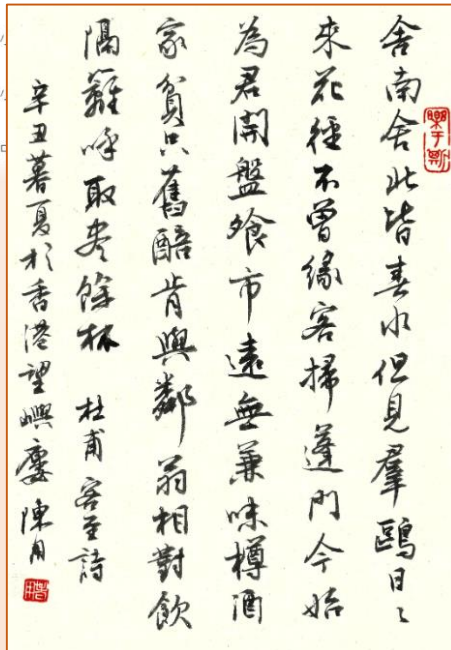 舍南舍北皆春水但見羣鷗日〻
來花徑不曾緣客掃蓬門今始
為君開盤飧市遠無兼味樽酒
家貧只舊醅肯與鄰翁相對飲
隔籬呼取尽餘杯 杜甫客至詩
辛丑暮夏於香港望嶼廔 陳用